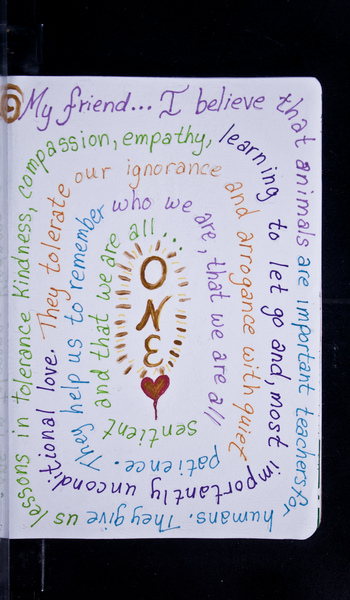 My friend... I believe
that animals are important teachers for
humans. They give us
lessons in tolerance kindness, compassion, empathy,
learning to let go and, most
importantly unconditional love.
They tolerate our ignorance
and arrogance with quiet
patience.
They help us to remember
who we are, that we are all
sentient
and that we are all...
ONE